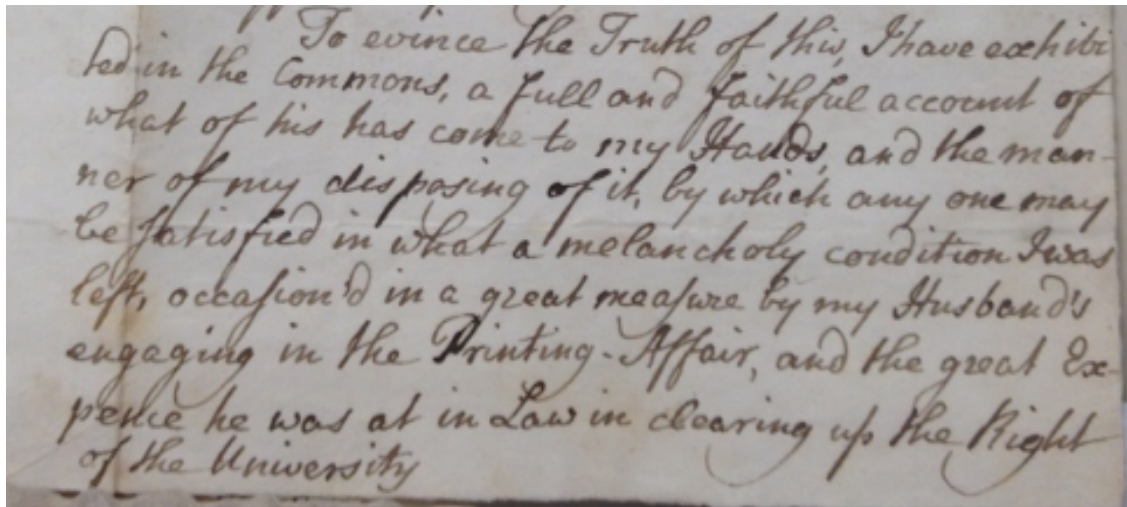 To evince the Truth of this, I have exhibi
ted in the Commons, a full and faithful account of
what of his has come to my Hands, and the man-
ner of my disposing of it, by which any one may
be satisfied in what a melancholy condition I was
left, occasion'd in a great measure by my Husband's
engaging in the Printing-Affair, and the great Ex-
pence he was at in Law in clearing up the Right
of the University